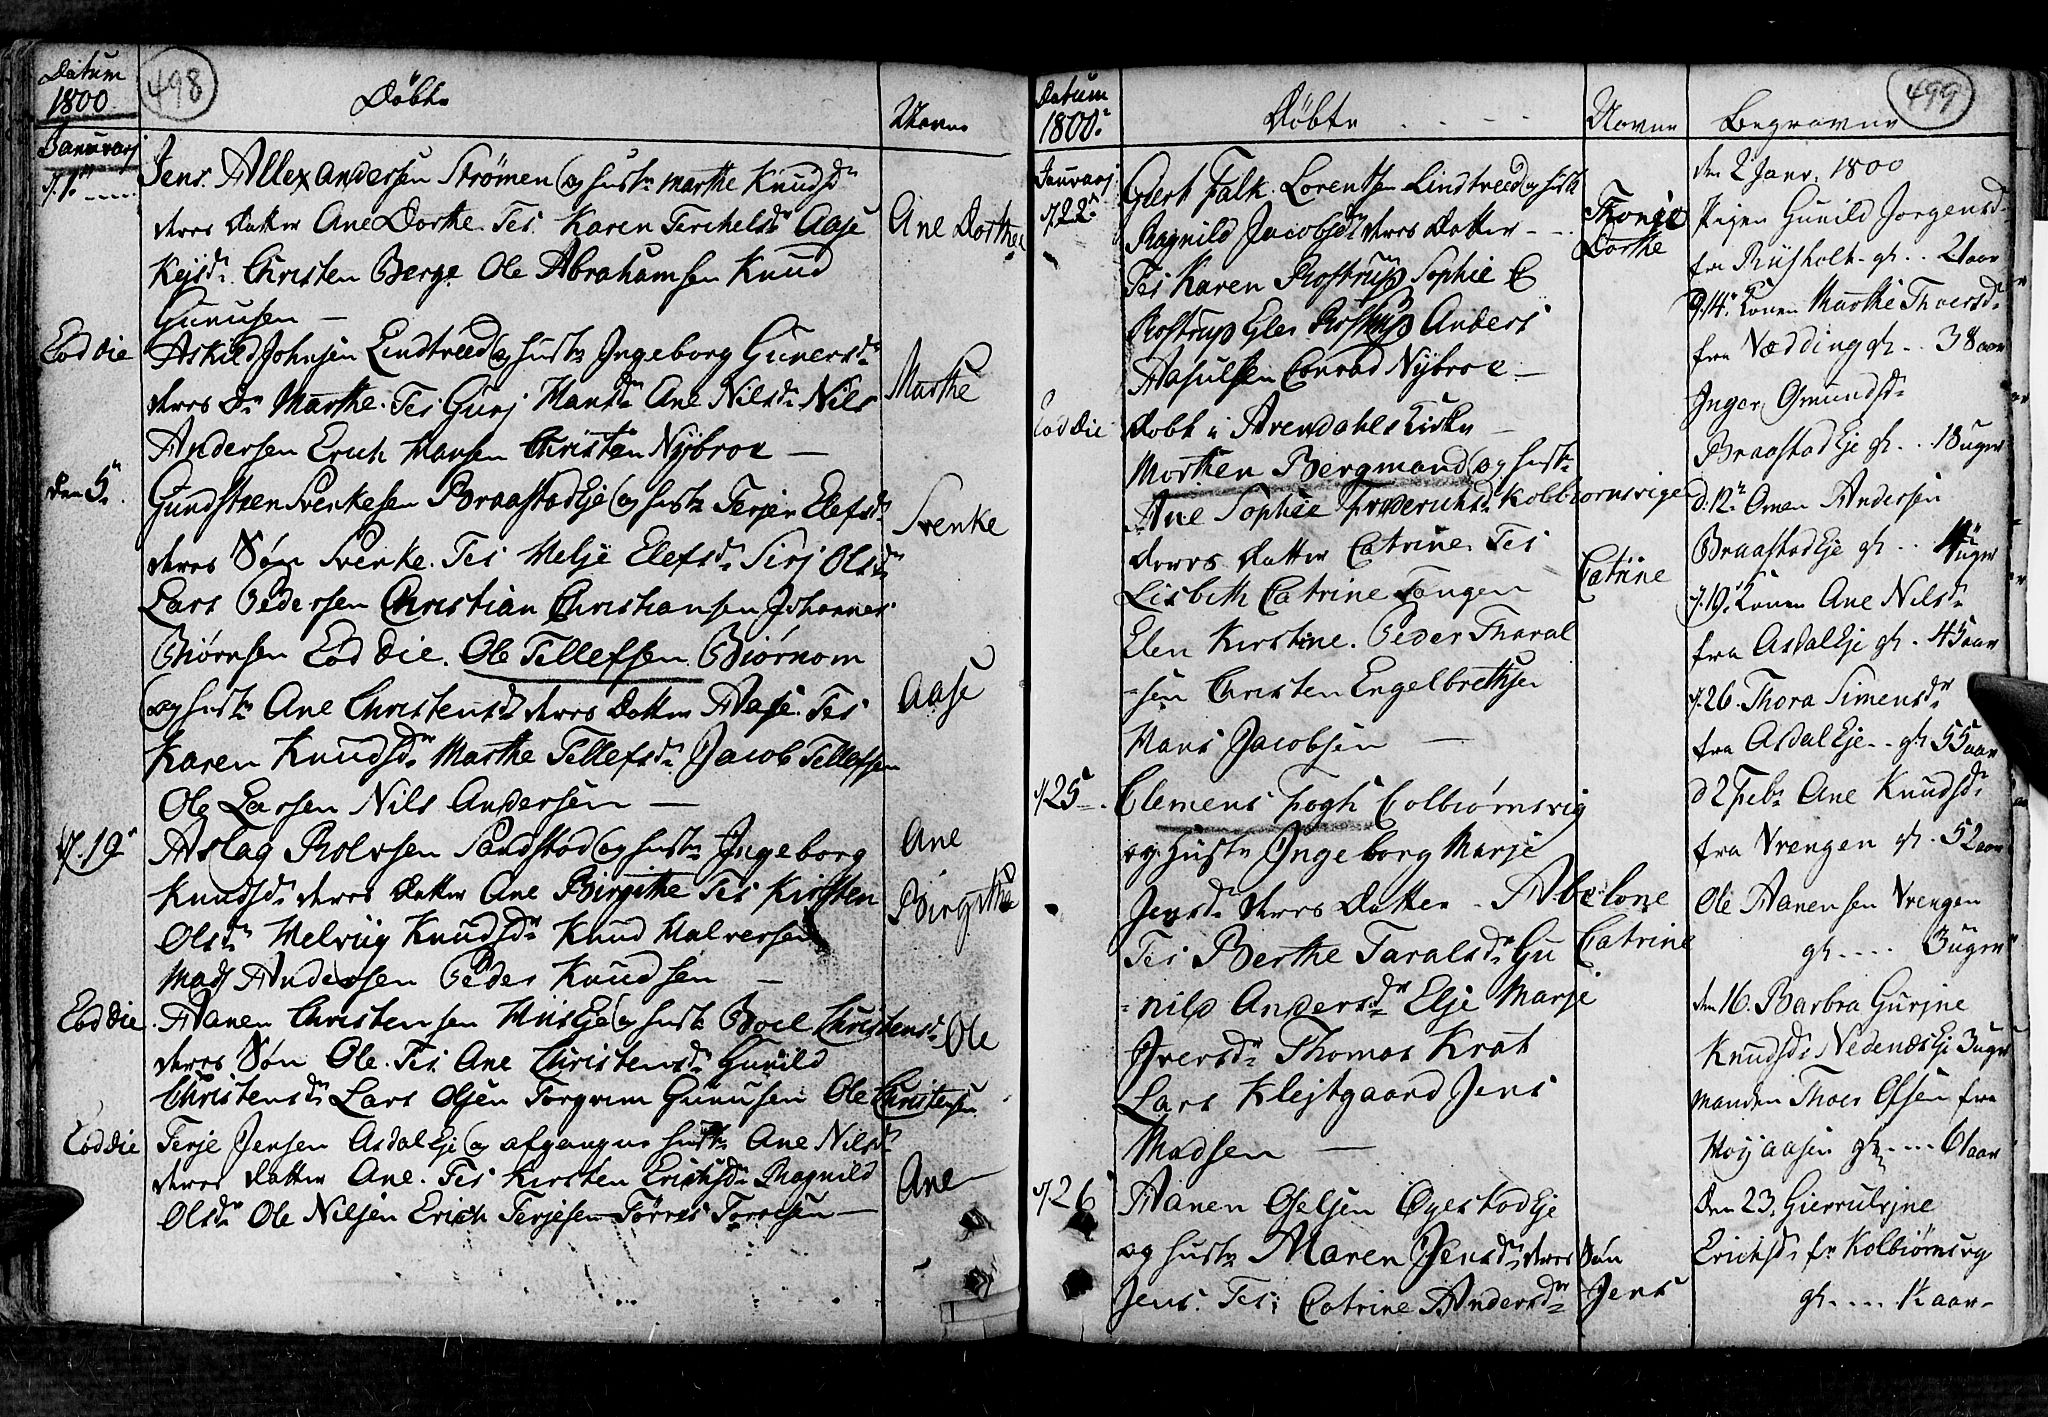 Datum
1800
498
Döbte
Navne
Januvarj
d. 1.ⁿ
Jens Allexandersen Strømen (og hustr Marthe Knudsdr
deres Datter Ane Dorthe. Tes Karen Terchelsdr Aase
Ane Dorthea
Kejsdr Christen Berge Ole Abrahamsen Knud
Gunusen —
Eod die
Askild Johnsen Lindtveed (og hustr Ingeborg Gunersdr
deres Dr Marthe. Tes Gurj Hansdr Ane Nilsdr Nils
Marthe
Andersen Erich Hansen Christen Nybroe —
den 5.
Gundsteen Svenkesen BraastadEje (og hustr Terjer Elefsdr
Svenke
deres Søn Svenke. Tes Helje Elefsdr Sirj Olsdr
Lars Pedersen Christian Christiansen Johannes
Biørnsen Eod Die. Ole Tellefsen Biørnom
(og hustr Ane Christensdr deres Datter Aase. Tes
Aase
Karen Knudsdr Marthe Tellefsdr Jacob Tellefsen
Ole Larsen Nils Andersen —
d. 19
Aslag Rolvsen Sandstad (og hustr Ingeborg
Ane
Knudsdr deres Datter Ane Birgithe Tes Kirsten
Birgithe
Olsdr Helvig Knudsdr Knud Halversen
Mads Andersen Peder Knudsen —
Eod die
Aanen Christensen HuusEje (og hustr Boel Christensdr
Ole
deres Søn Ole. Tes Ane Christensdr Gunild
Christensdr Lars Olsen Torgrim Gunusen Ole Christensen
Eod die
Terje Jensen AsdalEje (og afgangne hustr Ane Nilsdr
deres Datter Ane. Tes Kirsten Erichsdr Ragnild
Ane
Olsdr Ole Nilsen Erich Terjesen Törres Toresen —
Datum
1800.
Döbte
Navne
Begravne
499
Januvarj
d 22.
Giert Falk Lorentsen Lindtveed og hustr
Ragnild Jacobsdr deres Datter —
Thonje
Dorthe
Tes Karen Rostrup Sophie C
Rostrup Eler Rostrup Anders
Aasulsen Conrad Nybroe —
Eod Die
Dobt i Arendahls Kirke —
Morthen Bergmand (og hustr
Ane Sophie Frederichsdr Kolbiornsvige
deres Datter Catrine. Tes
Catrine
Lisbeth Catrine Tangen
Elen Kirstine. Peder Tharal
-sen Christen Engelbrethsen
Hans Jacobsen —
d 25
Clemens Fogh Colbiørnsvig
og hustr Ingeborg Marje
Jensdr deres Datter - Abelone
Catrine
Tes Berthe Taralsdr Gu
-nild Andersdr Elje Marje
Iversdr Thomas Krat
Lars Klejtgaard Jens
Madsen —
d 26
Aanen Oselsen ØyestadEje
og hustr Maren Jensdr deres Søn
Jens. Tes; Catrine Andersdr
Jens
den 2 Janv. 1800
Pigen Gunild Jorgensdr
fra Rüsholt gl. .. 21 aar
d. 14. Konen Marthe Thoersdr
fra Vædding gl. .. 38 aar
Inger Omundsdr
BraastadEje gl. .. 18 uger
d. 12. Omen Andersen
BraastadEje gl. .. uger
d. 19. Konen Ane Nilsdr
fra AsdalEje gl. . 45 aar
d. 26. Thora Simensdr
fra AsdalEje. . gl 55 aar
d 2 Febr Ane Knudsdr
fra Vrengen gl. 52 aar
Ole Aanensen Vrengen
gl. .... 3 uger
den 16. Barbra Gurine
Knudsdr NedenæsEj 3 uger
manden Thoer Olsen fra
Høyaasen gl. .... 61 aar
Den 23. Gierrulvine
Erichsdr fr Kolbiørnsvig
gl. .... 1½ aar -